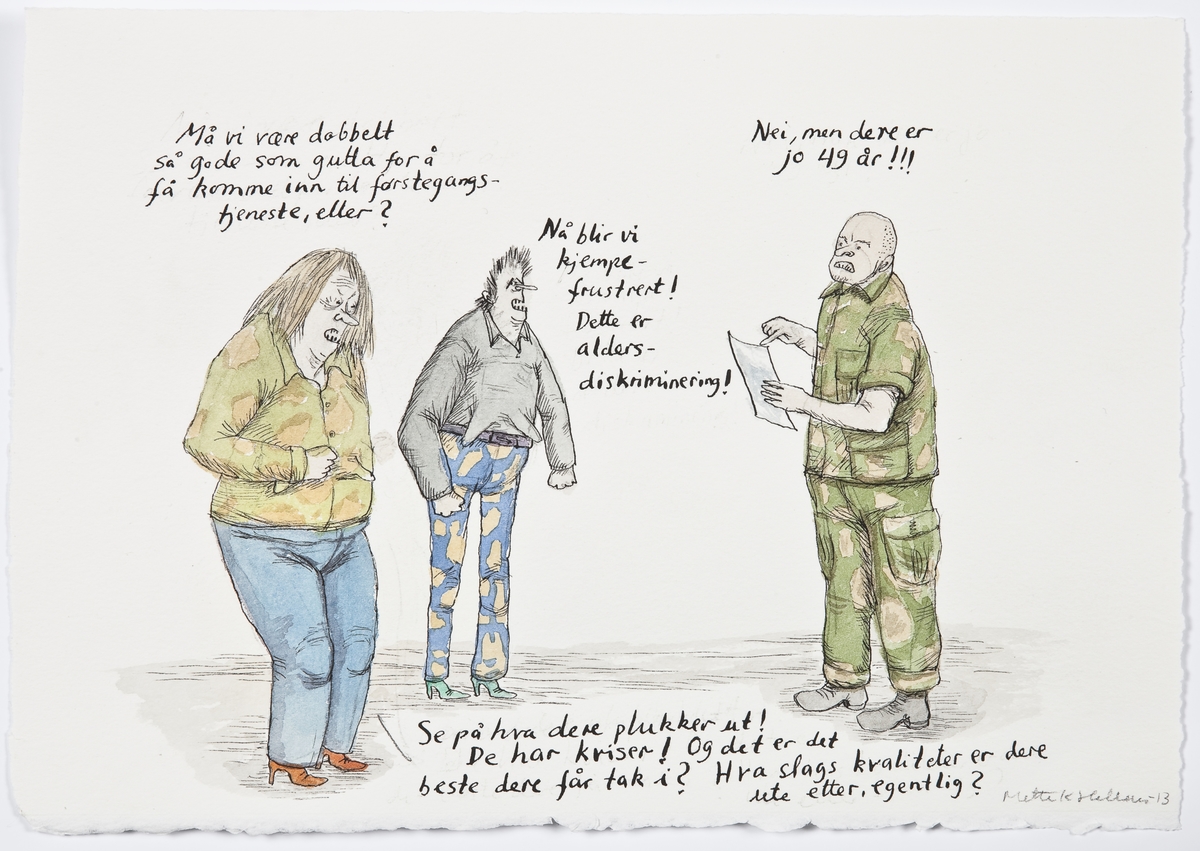 Må vi være dobbelt
så gode som gutta for å
få komme inn til førstegangs-
tjeneste, eller?
Nei, men dere er
jo 49 år!!!
Nå blir vi
kjempe-
frustrert!
Dette er
alders-
diskriminering!
Se på hva dere plukker ut!
De har kriser! Og det er det
beste dere får tak i? Hva slags kvaliteter er dere
ute etter, egentlig?
Mette K -13